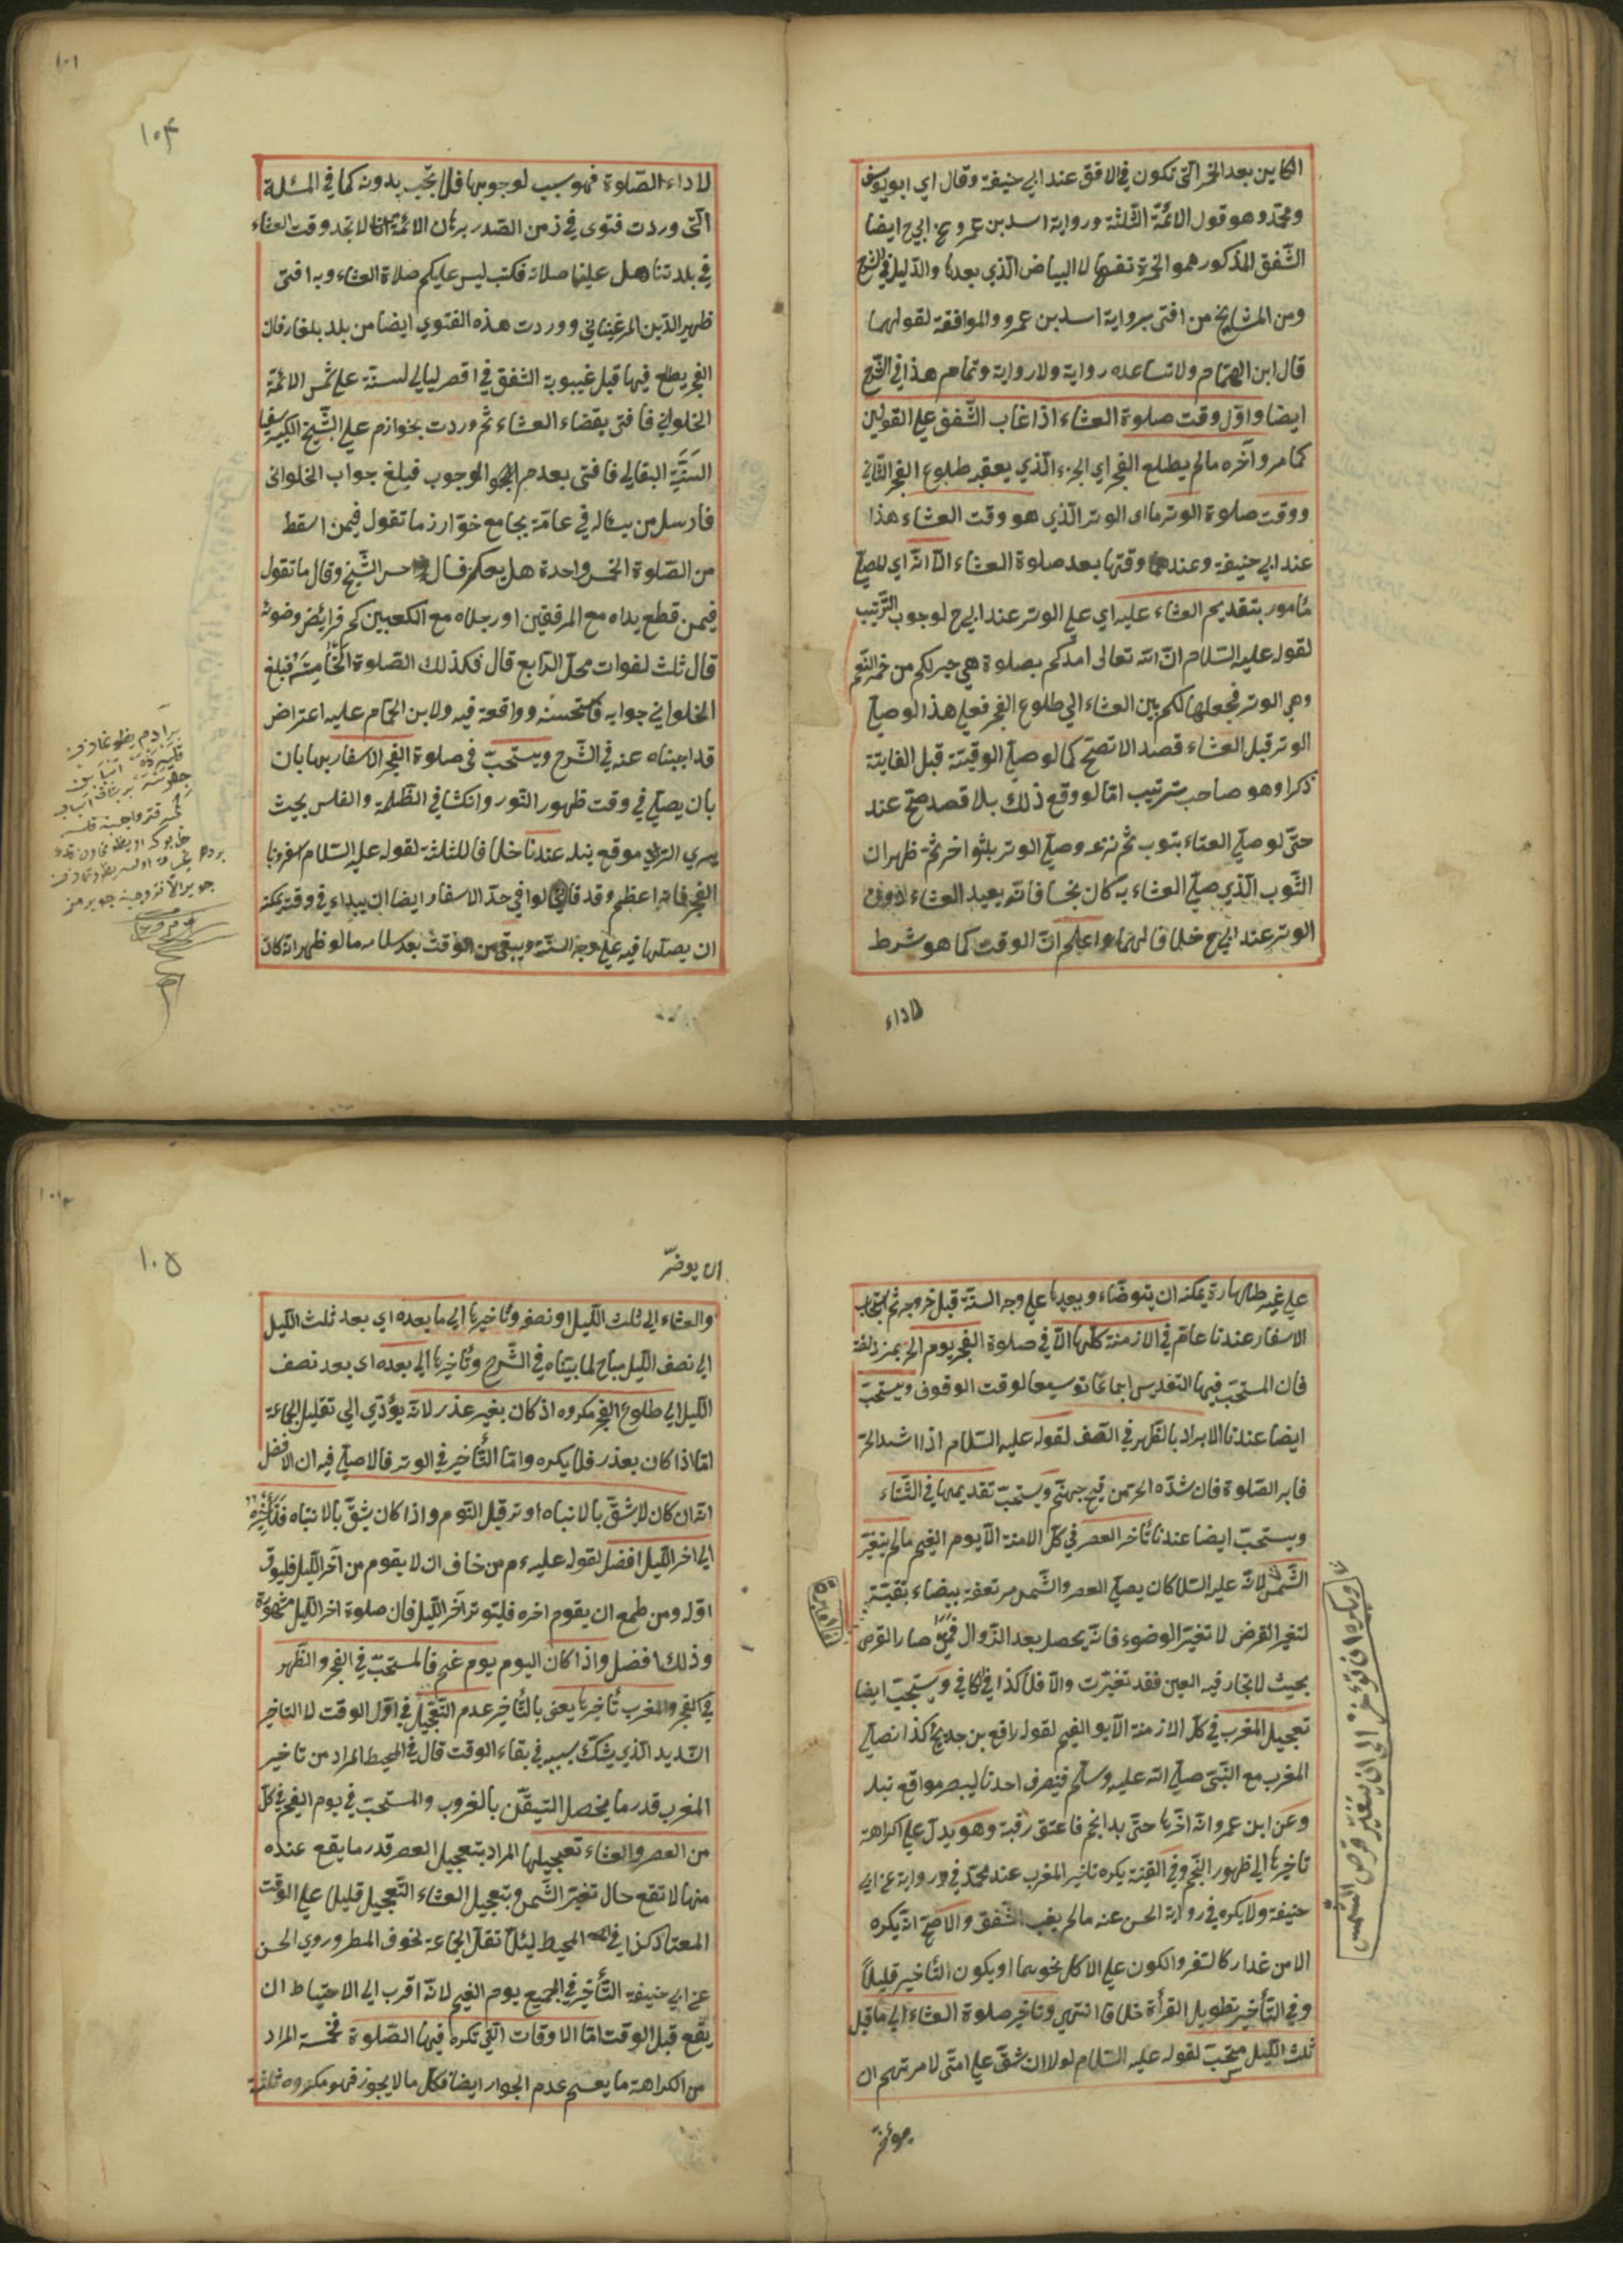 الكاين بعد الحمرة التى تكون فى الافق عند ابي حنيفة وقال اي ابو يوسف
ومحمد وهو قول الائمة الثلثة ورواية اسد بن عمرو عن ابي ح ايضا
الشفق المذكور هو الحمرة نفسها لا البياض الذي بعدها والدليل في الشرح
ومن المشايخ من افتى برواية اسد بن عمرو والموافقة لقولهما
قال ابن الهمام ولا تساعده رواية ولا رواية وتمام هذا في الشرح
ايضا واول وقت صلوة العشاء اذا غاب الشفق على القولين
كما مر وآخره مالم يطلع الفجر اي الجزء الذي يعقبه طلوع الفجر الثاني
ووقت صلوة الوتر ما اى الوتر الذي هو وقت العشاء هذا
عند ابي حنيفة وعندهما وقتها بعد صلوة العشاء الا انه اي المصلي
مأمور بتقديم العشاء عليه اي على الوتر عند ابي ح لوجوب الترتيب
لقوله عليه السلام ان الله تعالى امدكم بصلوة هي خير لكم من حمر النعم
وهي الوتر فجعلها لكم بين العشاء الي طلوع الفجر فعلى هذا لو صلي
الوتر قبل العشاء قصدا لا تصح كما لو صلي الوقتية قبل الفايتة
ذكرا وهو صاحب ترتيب اما لو وقع ذلك بلا قصد صح عند
حتى لو صلي العشاء بثوب ثم نزعه وصلي الوتر بثوب اخر ثم ظهر ان
الثوب الذي صلي العشاء به كان نجسا فانه يعيد العشاء دون
الوتر عند ابي ح خلافا لهما واعلم ان الوقت كما هو شرط
لاداء
١٠١
١٠٤
لاداء الصلوة فهو سبب لوجوبها فلا تجب بدونه كما في المسئلة
التى وردت فتوى في زمن الصدر برهان الائمة انا لا نجد وقت العشاء
في بلدتنا هل علينا صلاته فكتب ليس عليكم صلاة العشاء وبه افتى
ظهير الدين المرغيناني ووردت هذه الفتوي ايضا من بلد بلغار فان
الفجر يطلع فيها قبل غيبوبة الشفق في اقصر ليالي السنة على شمس الائمة
الحلواني فافتى بقضاء العشاء ثم وردت بخوازم على الشيخ الكبير سيف
السنة البقالي فافتى بعدم الوجوب فبلغ جواب الحلوانى
فارسل من يساله في عامة بجامع خوارزم ما تقول فيمن اسقط
من الصلوة الخمس واحدة هل يحكم فاحس الشيخ وقال ما تقول
فيمن قطع يداه مع المرفقين او رجلاه مع الكعبين كم فرائض وضوئه
قال ثلث لفوات محل الرابع قال فكذلك الصلوة الخامسة فبلغ
الحلواني جوابه فاستحسنه وواقعه فيه ولابن الهمام عليه اعتراض
قد اجبناه عنه في الشرح ويستحب فى صلوة الفجر الاسفار بها بان
بان يصلي في وقت ظهور النور وانكشاف الظلمة والغلس بحيث
يري الرامي موقع نبله عندنا خلافا للثلثة لقوله عليه السلام اسفروا
الفجر فانه اعظم وقد قالوا في حد الاسفار ايضا ان يبداء في وقت يمكنه
ان يصليها فيه على وجه السنة ويبقى من الوقت بعد سلامه ما لو ظهر انه كان
على غير طهارة يمكنه ان يتوضاء ويعيدها على وجه السنة قبل خروجه ثم استحباب
الاسفار عندنا عام في الازمنة كلها الا في صلوة الفجر يوم النحر بمزدلفة
فان المستحب فيها التغليس اجماعا توسيعا لوقت الوقوف ويستحب
ايضا عندنا الابراد بالظهر في الصيف لقوله عليه السلام اذا اشتد الحر
فابردوا الصلوة فان شدة الحر من فيح جهنم ويستحب تقديمها في الشتاء
ويستحب ايضا عندنا تأخر العصر في كل الازمنة الا يوم الغيم مالم يتغير
الشمس لانه عليه السلام كان يصلي العصر والشمس مرتفعة بيضاء نقية
لتغير القرص لا تغير الضوء فانه يحصل بعد الزوال فمتى صار القرص
بحيث لا تحار فيه العين فقد تغيرت والا فلا كذا في الكافي ويستحب ايضا
تعجيل المغرب في كل الازمنة الا يوم الغيم لقول رافع بن خديج كنا نصلي
المغرب مع النبي صلي الله عليه وسلم فينصرف احدنا ليبصر مواقع نبله
وعن ابن عمر انه اخرها حتى بدا نجم فاعتق رقبة وهو يدل على كراهة
تاخيرها الى ظهور النجم وفي القنية يكره تاخير المغرب عند محمد في رواية عن ابي
حنيفة ولا يكره في رواية الحسن عنه مالم يغب الشفق والاصح انه يكره
الا من عذار كالسفر والكون على الاكل نحوهما او يكون التأخير قليلا
وفي التأخير بتطويل القرأة خلاف انتهى وتاخير صلوة العشاء الي ما قبل
ثلث الليل مستحب لقوله عليه السلام لولا ان شق على امتى لامرتهم ان
يؤخر
ويكره ان تؤخر الى ان يتغير قرص الشمس
١٠٥
ان يوخر
والعشاء الى ثلث الليل او نصفه وتاخيرها الي ما بعده اي بعد ثلث الليل
الى نصف الليل مباح لما بيناه في الشرح وتاخيرها الي بعده اى بعد نصف
الليل الي طلوع الفجر مكروه اذ كان بغير عذر لانه يؤدي الي تقليل الجماعة
اما اذا كان بعذر فلا يكره واما التأخير في الوتر فالاصلح فيه ان الافضل
انه ان كان لا يشق بالانتباه اوتر قبل النوم واذا كان يشق بالانتباه فتأخيره
الي اخر الليل افضل لقوله عليه م من خاف ان لا يقوم من آخر الليل فليوتر
اوله ومن طمع ان يقوم اخره فليوتر آخر الليل فان صلوة اخر الليل مشهودة
وذلك افضل واذا كان اليوم يوم غيم فالمستحب في الفجر والظهر
في الفجر والمغرب تأخيرها يعنى بالتأخير عدم التعجيل في اول الوقت لا التاخير
الشديد الذي يشك بسببه في بقاء الوقت قال في المحيط المراد من تاخير
المغرب قدر ما يحصل التيقن بالغروب والمستحب في يوم الغيم في كل
من العصر والعشاء تعجيلها المراد بتعجيل العصر قدر ما يقع عنده
منها لا تقع حال تغير الشمس وبتعجيل العشاء التعجيل قليلا على الوقت
المعتاد كذا في المحيط ليئلا تقل الجماعة لخوف المطر وروي الحسن
عن ابي حنيفة التأخير في الجميع يوم الغيم لانه اقرب الي الاحتياط ان
يقع قبل الوقت اما الاوقات التي تكره فيها الصلوة فخمسة المراد
من الكراهة ما يعم عدم الجواز ايضا فكل ما لا يجوز فهو مكروه ثلثة